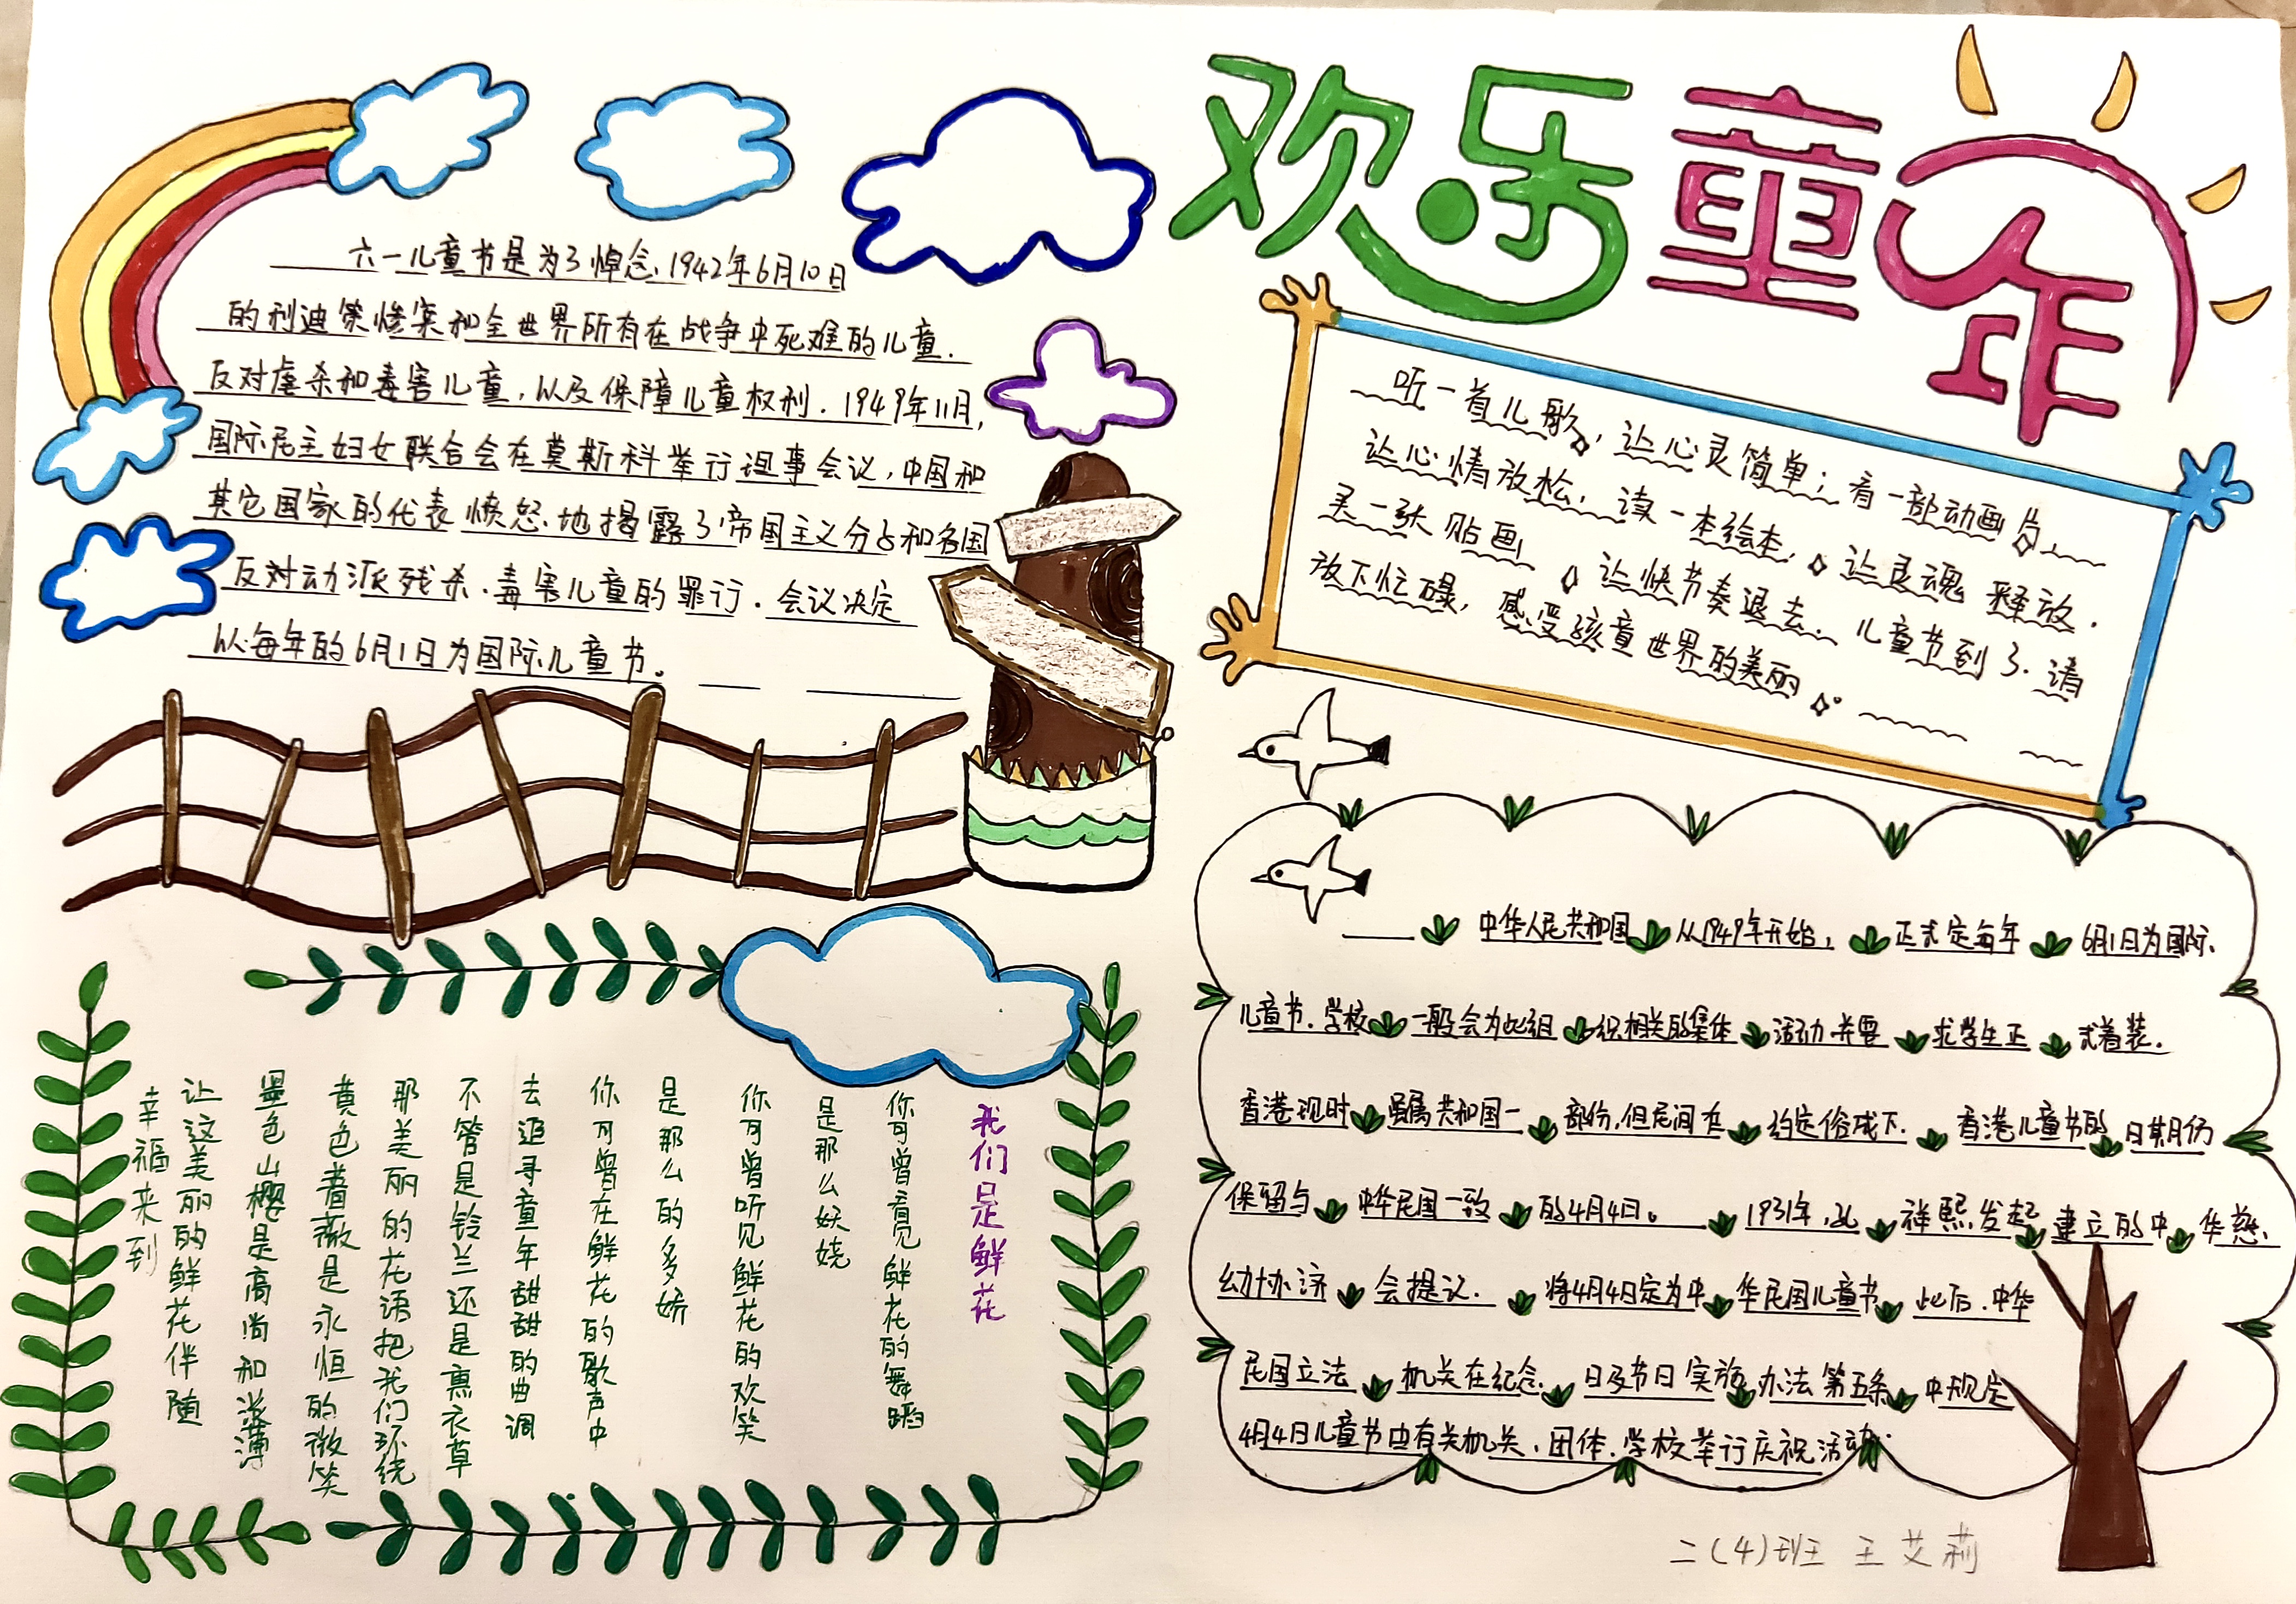 欢乐童年
六一儿童节是为了悼念1942年6月10日
的利迪策惨案和全世界所有在战争中死难的儿童.
反对虐杀和毒害儿童,以及保障儿童权利.1949年11月,
国际民主妇女联合会在莫斯科举行理事会议,中国和
其它国家的代表愤怒地揭露了帝国主义分占和各国
反对动派残杀.毒害儿童的罪行.会议决定
以每年的6月1日为国际儿童节。
听一首儿歌,让心灵简单;看一部动画片,
让心情放松,读一本绘本,让灵魂释放.
弄一张贴画,让快节奏退去.儿童节到了.请
放下忙碌,感受孩童世界的美丽。
我们是鲜花
你可曾看见鲜花的舞蹈
是那么妖娆
你可曾听见鲜花的欢笑
是那么的多娇
你可曾在鲜花的歌声中
去追寻童年甜甜的曲调
不管是铃兰还是熏衣草
那美丽的花语把我们环绕
黄色蔷薇是永恒的微笑
墨色山樱是高尚和淡薄
让这美丽的鲜花伴随
幸福来到
中华人民共和国从1949年开始,正式定每年6月1日为国际
儿童节.学校一般会为此组织相关的集体活动并要求学生正式着装.
香港现时虽属共和国一部份,但民间在约定俗成下.香港儿童节的日期仍
保留与中华民国一致的4月4日。1931年,孔祥熙发起建立的中华慈
幼协济会提议.将4月4日定为中华民国儿童节此后.中华
民国立法机关在纪念日及节日实施办法第五条中规定
4月4日儿童节由有关机关、团体.学校举行庆祝活动.
二(4)班 王艾莉